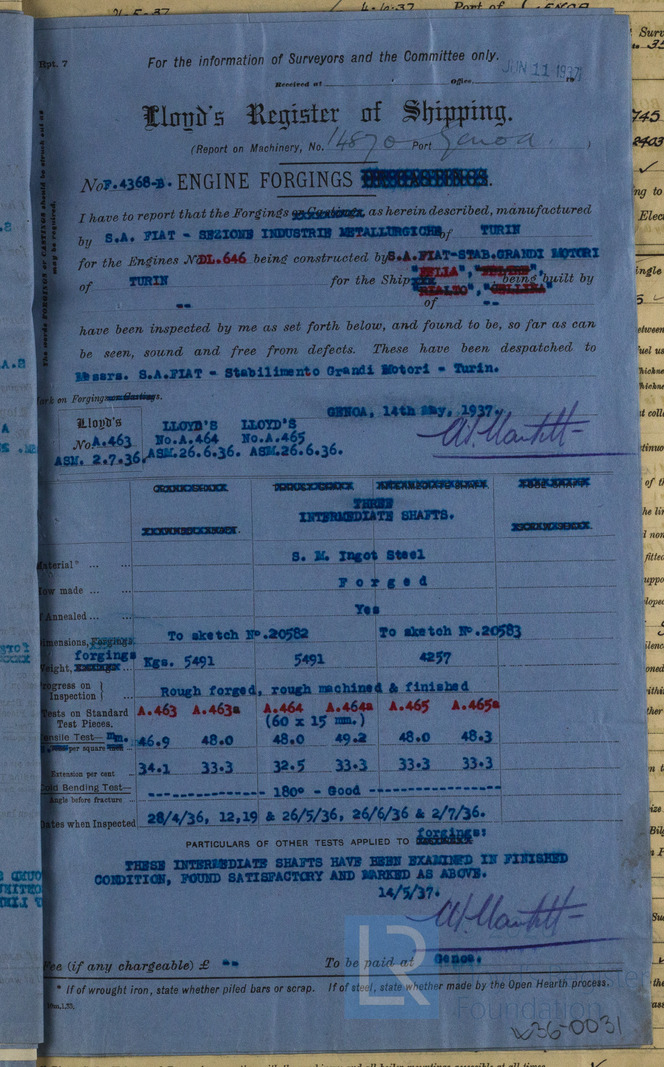 Rpt. 7
For the information of Surveyors and the Committee only.
Received at Office JUN 11 1937 19
Lloyd's Register of Shipping.
(Report on Machinery, No. 14870 Port Genoa. )
No F.4368-B. ENGINE FORGINGS
I have to report that the Forgings or Castings, as herein described, manufactured
by S.A. FIAT - SEZIONE INDUSTRIE METALLURGICHE of TURIN
for the Engines No DL.646 being constructed by S.A.FIAT-STAB.GRANDI MOTORI
of TURIN for the Ship being built by
"REALTO",
-- of --
have been inspected by me as set forth below, and found to be, so far as can
be seen, sound and free from defects. These have been despatched to
Messrs. S.A.FIAT - Stabilimento Grandi Motori - Turin.
Mark on Forgings or Castings.
GENOA, 14th May, 1937.
Lloyd's LLOYD'S LLOYD'S
No. A.463 No.A.464 No.A.465
ASM. 2.7.36. ASM.26.6.36. ASM.26.6.36.
The words FORGINGS or CASTINGS should be struck out as may be required.
THREE
INTERMEDIATE SHAFTS.
Material* ... ... S. M. Ingot Steel
How made ... ... Forged
If Annealed ... ... Yes
Dimensions, Forgings To sketch No.20582 To sketch No.20583
forgings
Weight, Kgs. 5491 5491 4257
Progress on
Inspection } ... Rough forged, rough machined & finished
Tests on Standard A.463 A.463a A.464 A.464a A.465 A.465a
Test Pieces. (60 x 15 mm.)
Tensile Test— mm. 46.9 48.0 48.0 49.2 48.0 48.3
per square
Extension per cent 34.1 33.3 32.5 33.3 33.3 33.3
Cold Bending Test— 180º - Good
Angle before fracture ...
Dates when Inspected 28/4/36, 12,19 & 26/5/36, 26/6/36 & 2/7/36.
PARTICULARS OF OTHER TESTS APPLIED TO forgings:
THESE INTERMEDIATE SHAFTS HAVE BEEN EXAMINED IN FINISHED
CONDITION, FOUND SATISFACTORY AND MARKED AS ABOVE.
14/5/37.
Fee (if any chargeable) £ -- To be paid at Genoa.
* If of wrought iron, state whether piled bars or scrap. If of steel, state whether made by the Open Hearth process.
LR Foundation
W36-0031